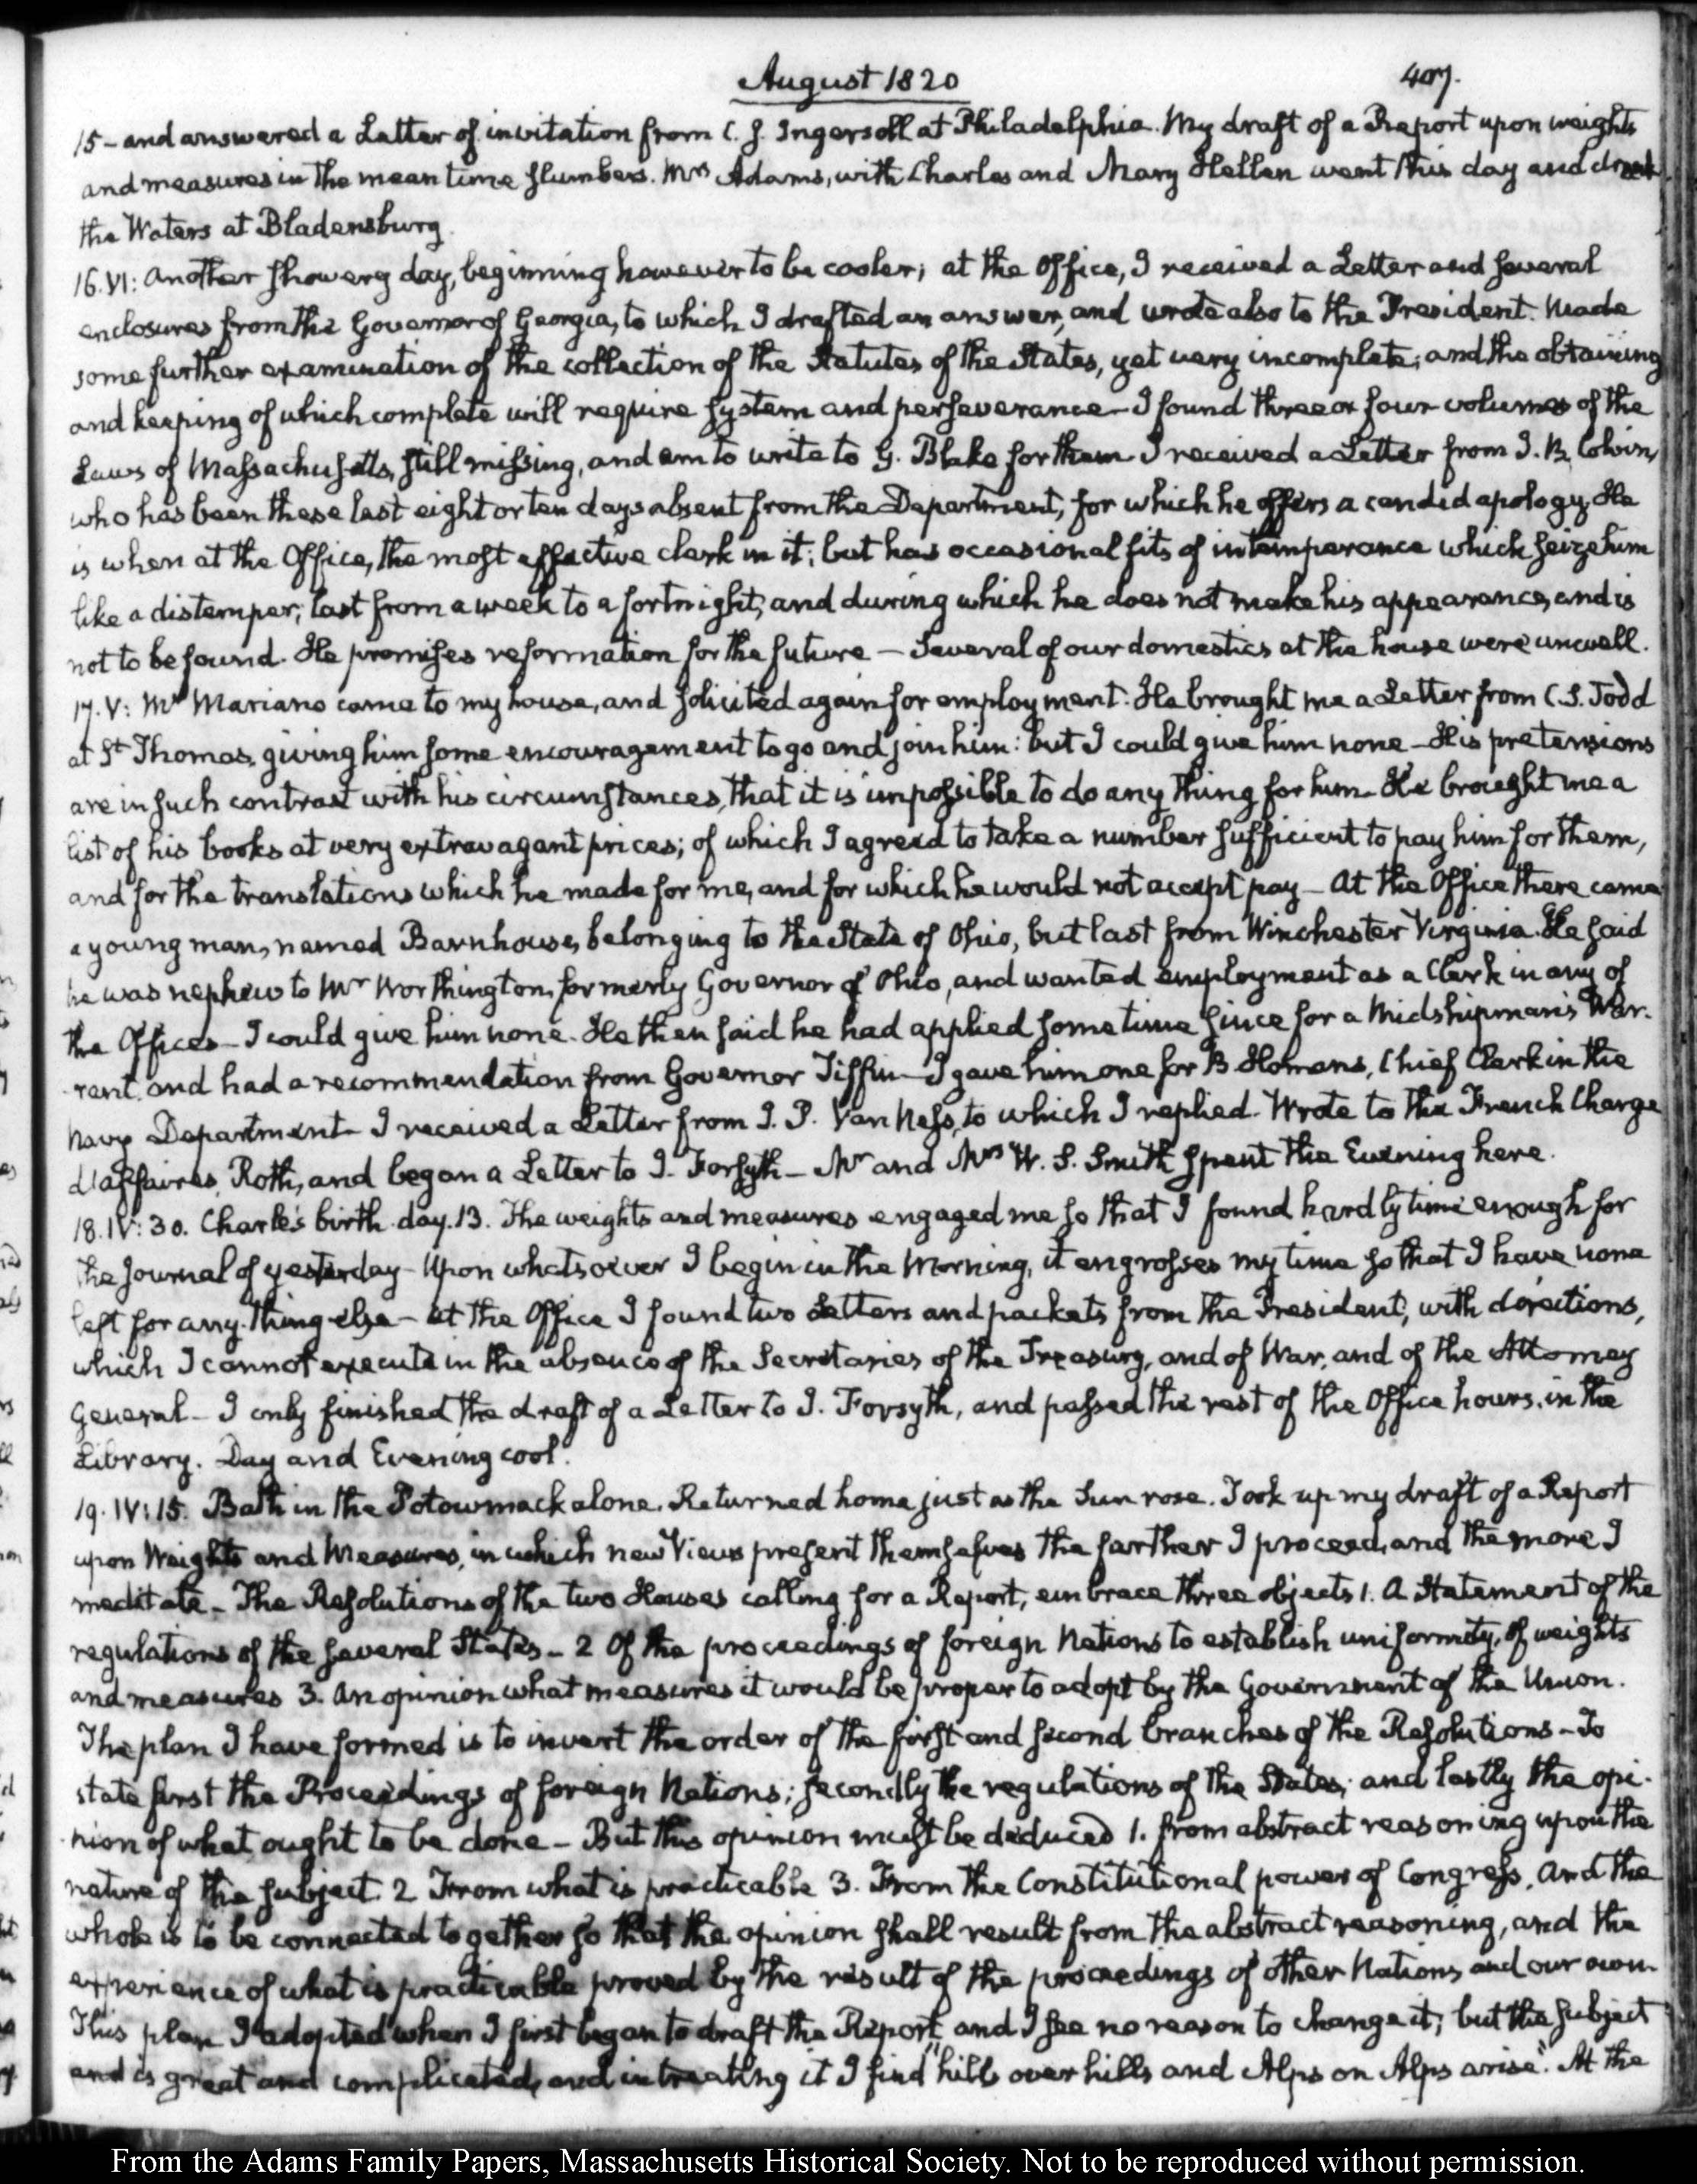 August 1820
407.
15 - and answered a Letter of invitation from C. J. Ingersoll at Philadelphia. My draft of a Report upon weights
and measures in the mean time slumbers. Mrs Adams, with Charles and Mary Hellen went this day and drank
the Waters at Bladensburg.
16. VI: Another showery day, beginning however to be cooler; at the Office, I received a Letter and several
enclosures from the Governor of Georgia, to which I drafted an answer, and wrote also to the President. Made
some further examination of the collection of the Statutes of the States, yet very incomplete; and the obtaining
and keeping of which complete will require system and perseverance - I found three or four volumes of the
Laws of Massachusetts, still missing, and am to write to G. Blake for them - I received a Letter from J. B. Colvin,
who has been these last eight or ten days absent from the Department, for which he offers a candid apology. He
is when at the Office, the most effective clerk in it; but has occasional fits of intemperance which seize him
like a distemper; last from a week to a fortnight, and during which he does not make his appearance, and is
not to be found. He promises reformation for the future - Several of our domestics at the house were unwell.
17. V: Mr Mariano came to my house, and solicited again for employment. He brought me a Letter from C. S. Todd
at St Thomas, giving him some encouragement to go and join him: but I could give him none - His pretensions
are in such contrast with his circumstances, that it is impossible to do any thing for him - He brought me a
list of his books at very extravagant prices; of which I agreed to take a number sufficient to pay him for them,
and for the translations which he made for me, and for which he would not accept pay - At the Office there came
a young man, named Barnhouse, belonging to the State of Ohio, but last from Winchester Virginia. He said
he was nephew to Mr Worthington, formerly Governor of Ohio, and wanted employment as a Clerk in any of
the Offices - I could give him none. He then said he had applied some time since for a Midshipman's War-
-rant, and had a recommendation from Governor Tiffin - I gave him one for B. Homans, Chief Clerk in the
Navy Department - I received a Letter from J. P. Van Ness, to which I replied. Wrote to the French Chargé
d'affaires, Roth, and began a Letter to J. Forsyth - Mr and Mrs W. S. Smith spent the Evening here.
18. IV: 30. Charles's birth-day. 13. The weights and measures engaged me so that I found hardly time enough for
the journal of yesterday - Upon whatsoever I begin in the Morning, it engrosses my time so that I have none
left for any thing else - At the Office I found two Letters and packets from the President, with directions,
which I cannot execute in the absence of the Secretaries of the Treasury, and of War, and of the Attorney
General - I only finished the draft of a Letter to J. Forsyth, and passed the rest of the Office hours, in the
Library. Day and Evening cool.
19. IV: 15. Bath in the Potowmack alone. Returned home just as the Sun rose. Took up my draft of a Report
upon Weights and Measures, in which new Views present themselves the farther I proceed, and the more I
meditate - The Resolutions of the two Houses calling for a Report, embrace three objects 1. A Statement of the
regulations of the several States - 2 Of the proceedings of foreign Nations to establish uniformity, of weights
and measures 3. An opinion what measures it would be proper to adopt by the Government of the Union.
The plan I have formed is to invert the order of the first and second branches of the Resolutions - To
state first the Proceedings of foreign Nations; secondly the regulations of the States; and lastly the opi-
-nion of what ought to be done - But this opinion must be deduced 1. from abstract reasoning upon the
nature of the subject. 2 From what is practicable 3. From the Constitutional power of Congress. And the
whole is to be connected together so that the opinion shall result from the abstract reasoning, and the
experience of what is practicable proved by the result of the proceedings of other Nations, and our own -
This plan I adopted when I first began to draft the Report, and I see no reason to change it; but the subject
and is great and complicated, and in treating it I find "hills over hills and Alps on Alps arise". At the
From the Adams Family Papers, Massachusetts Historical Society. Not to be reproduced without permission.